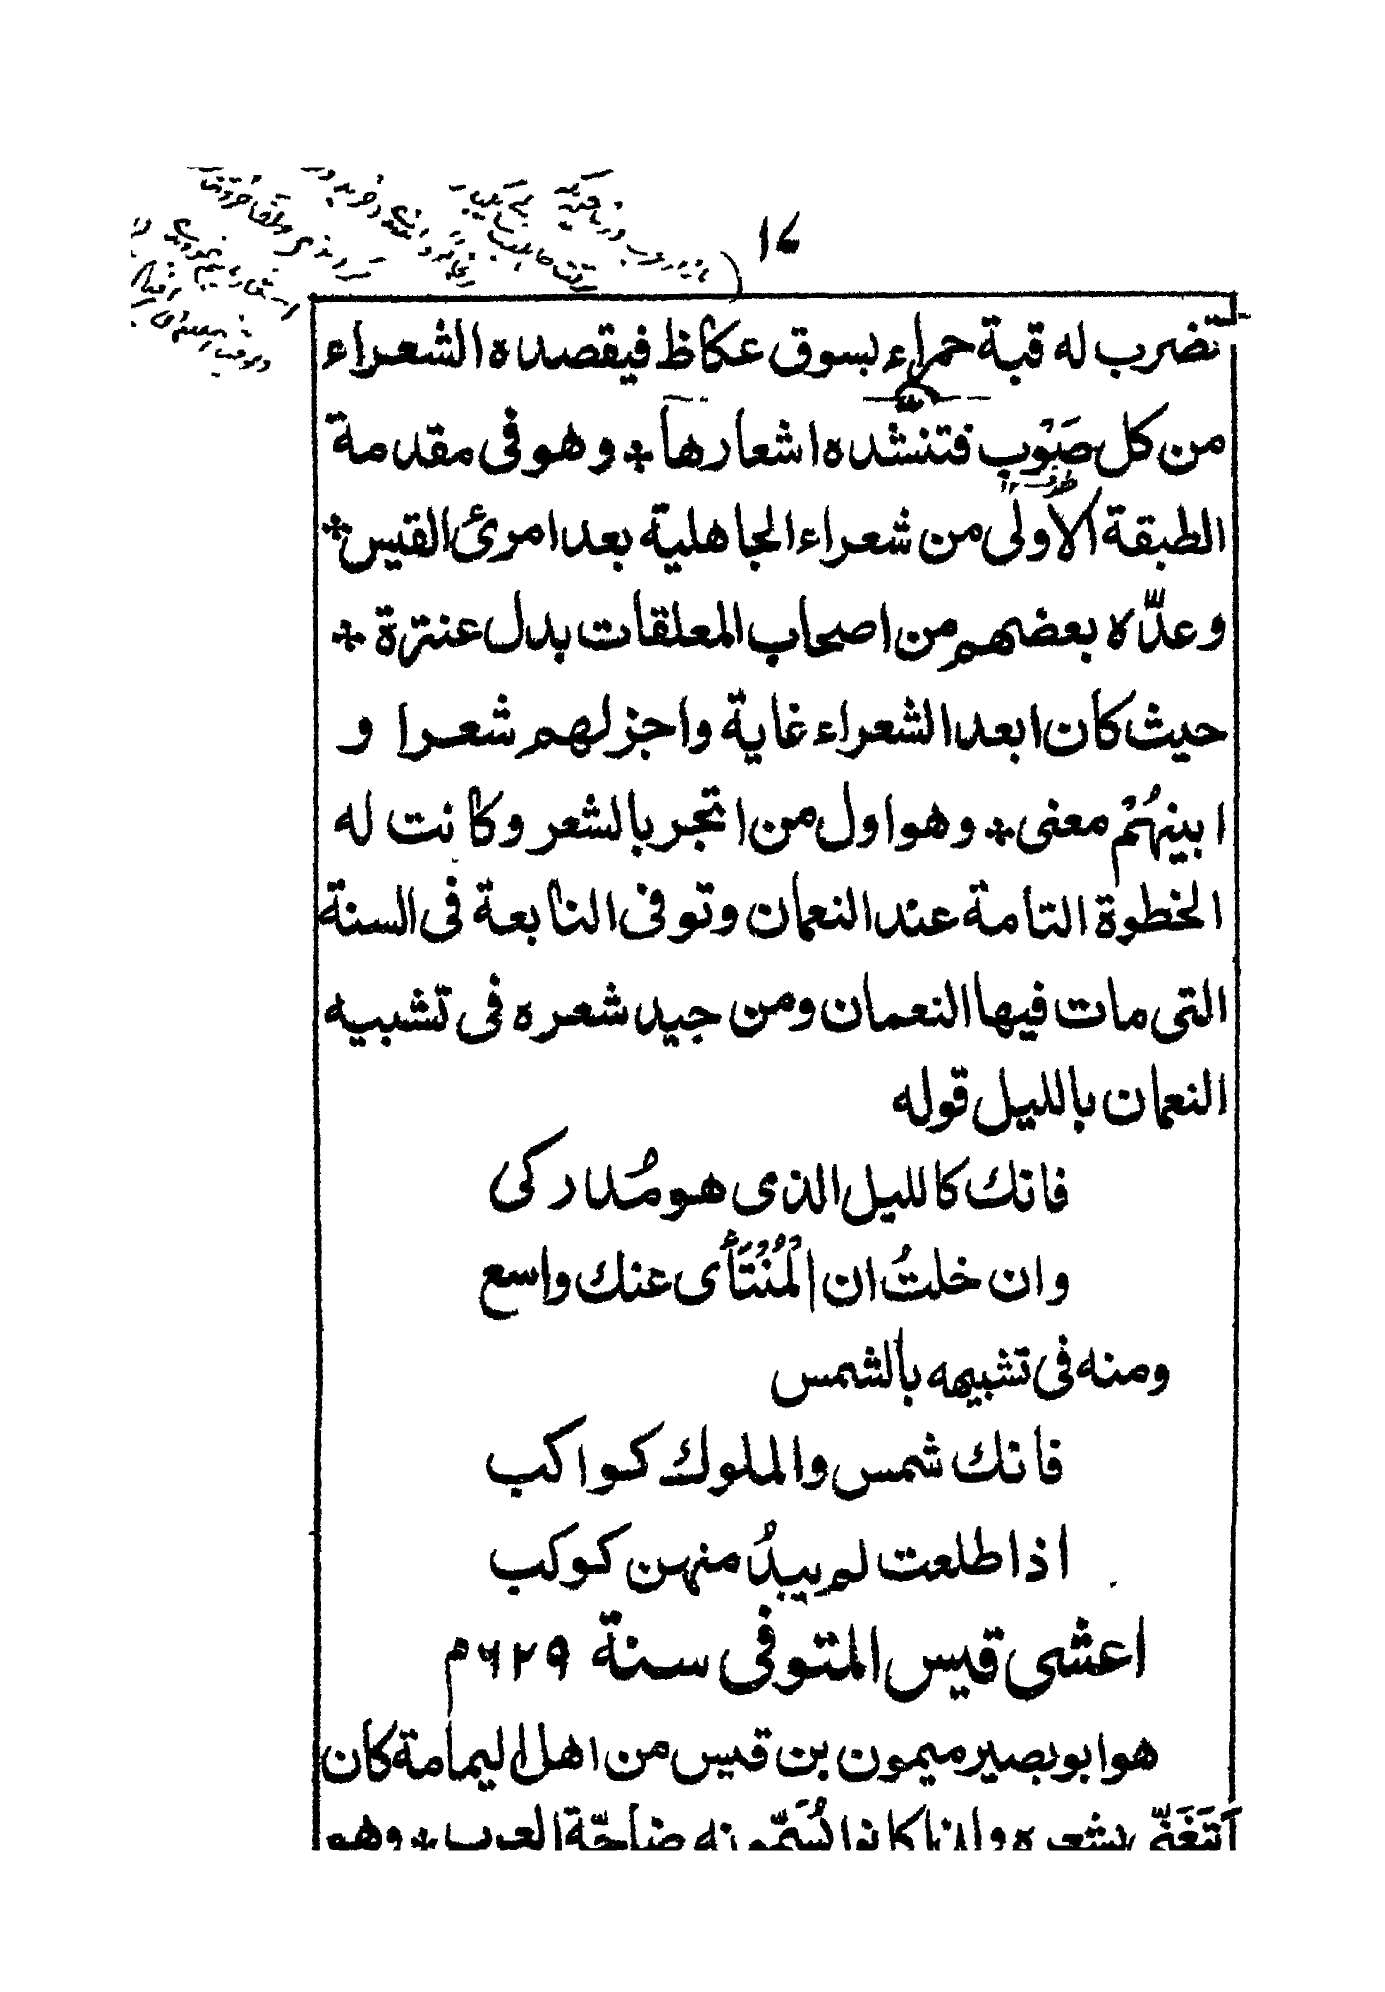 ١٤
تضرب له قبة حمراء بسوق عكاظ فيقصده الشعراء
من كل صَوْب فتنشده اشعارها * وهو فى مقدمة
الطبقة الأولى من شعراء الجاهلية بعد امرئ القيس *
وعدّه بعضهم من اصحاب المعلقات بدل عنترة *
حيث كان ابعد الشعراء غاية واجزلهم شعرا و
ابينهُمْ معنى * وهو اول من اتجر بالشعر وكانت له
الخطوة التامة عند النعمان وتوفى النابعة فى السنة
التى مات فيها النعمان ومن جيد شعره فى تشبيه
النعمان بالليل قوله
فانك كالليل الذى هو مُدركى
وان خلتُ ان المُنْتَأى عنك واسع
ومنه فى تشبيهه بالشمس
فانك شمس والملوك كواكب
اذا طلعت لم يبدُ منهن كوكب
اعشى قيس المتوفى سنة ٦٢٩م
هو ابو بصير ميمون بن قيس من اهل اليمامة كان
يَتَغَنّى بشعره وانما كانوا يُسَمّونه صناجّة العرب * وهو